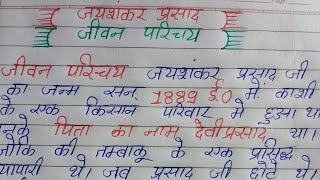 जयशंकर प्रसाद
जीवन परिचय
जीवन परिचय जयशंकर प्रसाद जी
का जन्म सन् 1889 ई० में काशी
के एक किसान परिवार मे हुआ था
इनके पिता का नाम देवीप्रसाद था।
जोकि की तम्बाकू के एक प्रसिद्ध
व्यापारी थे। जब प्रसाद जी छोटे थे।